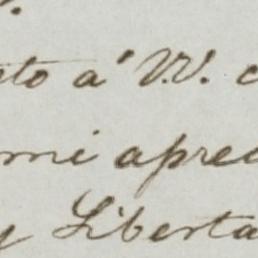 to á V.V. c
mi aprec
y Liberta